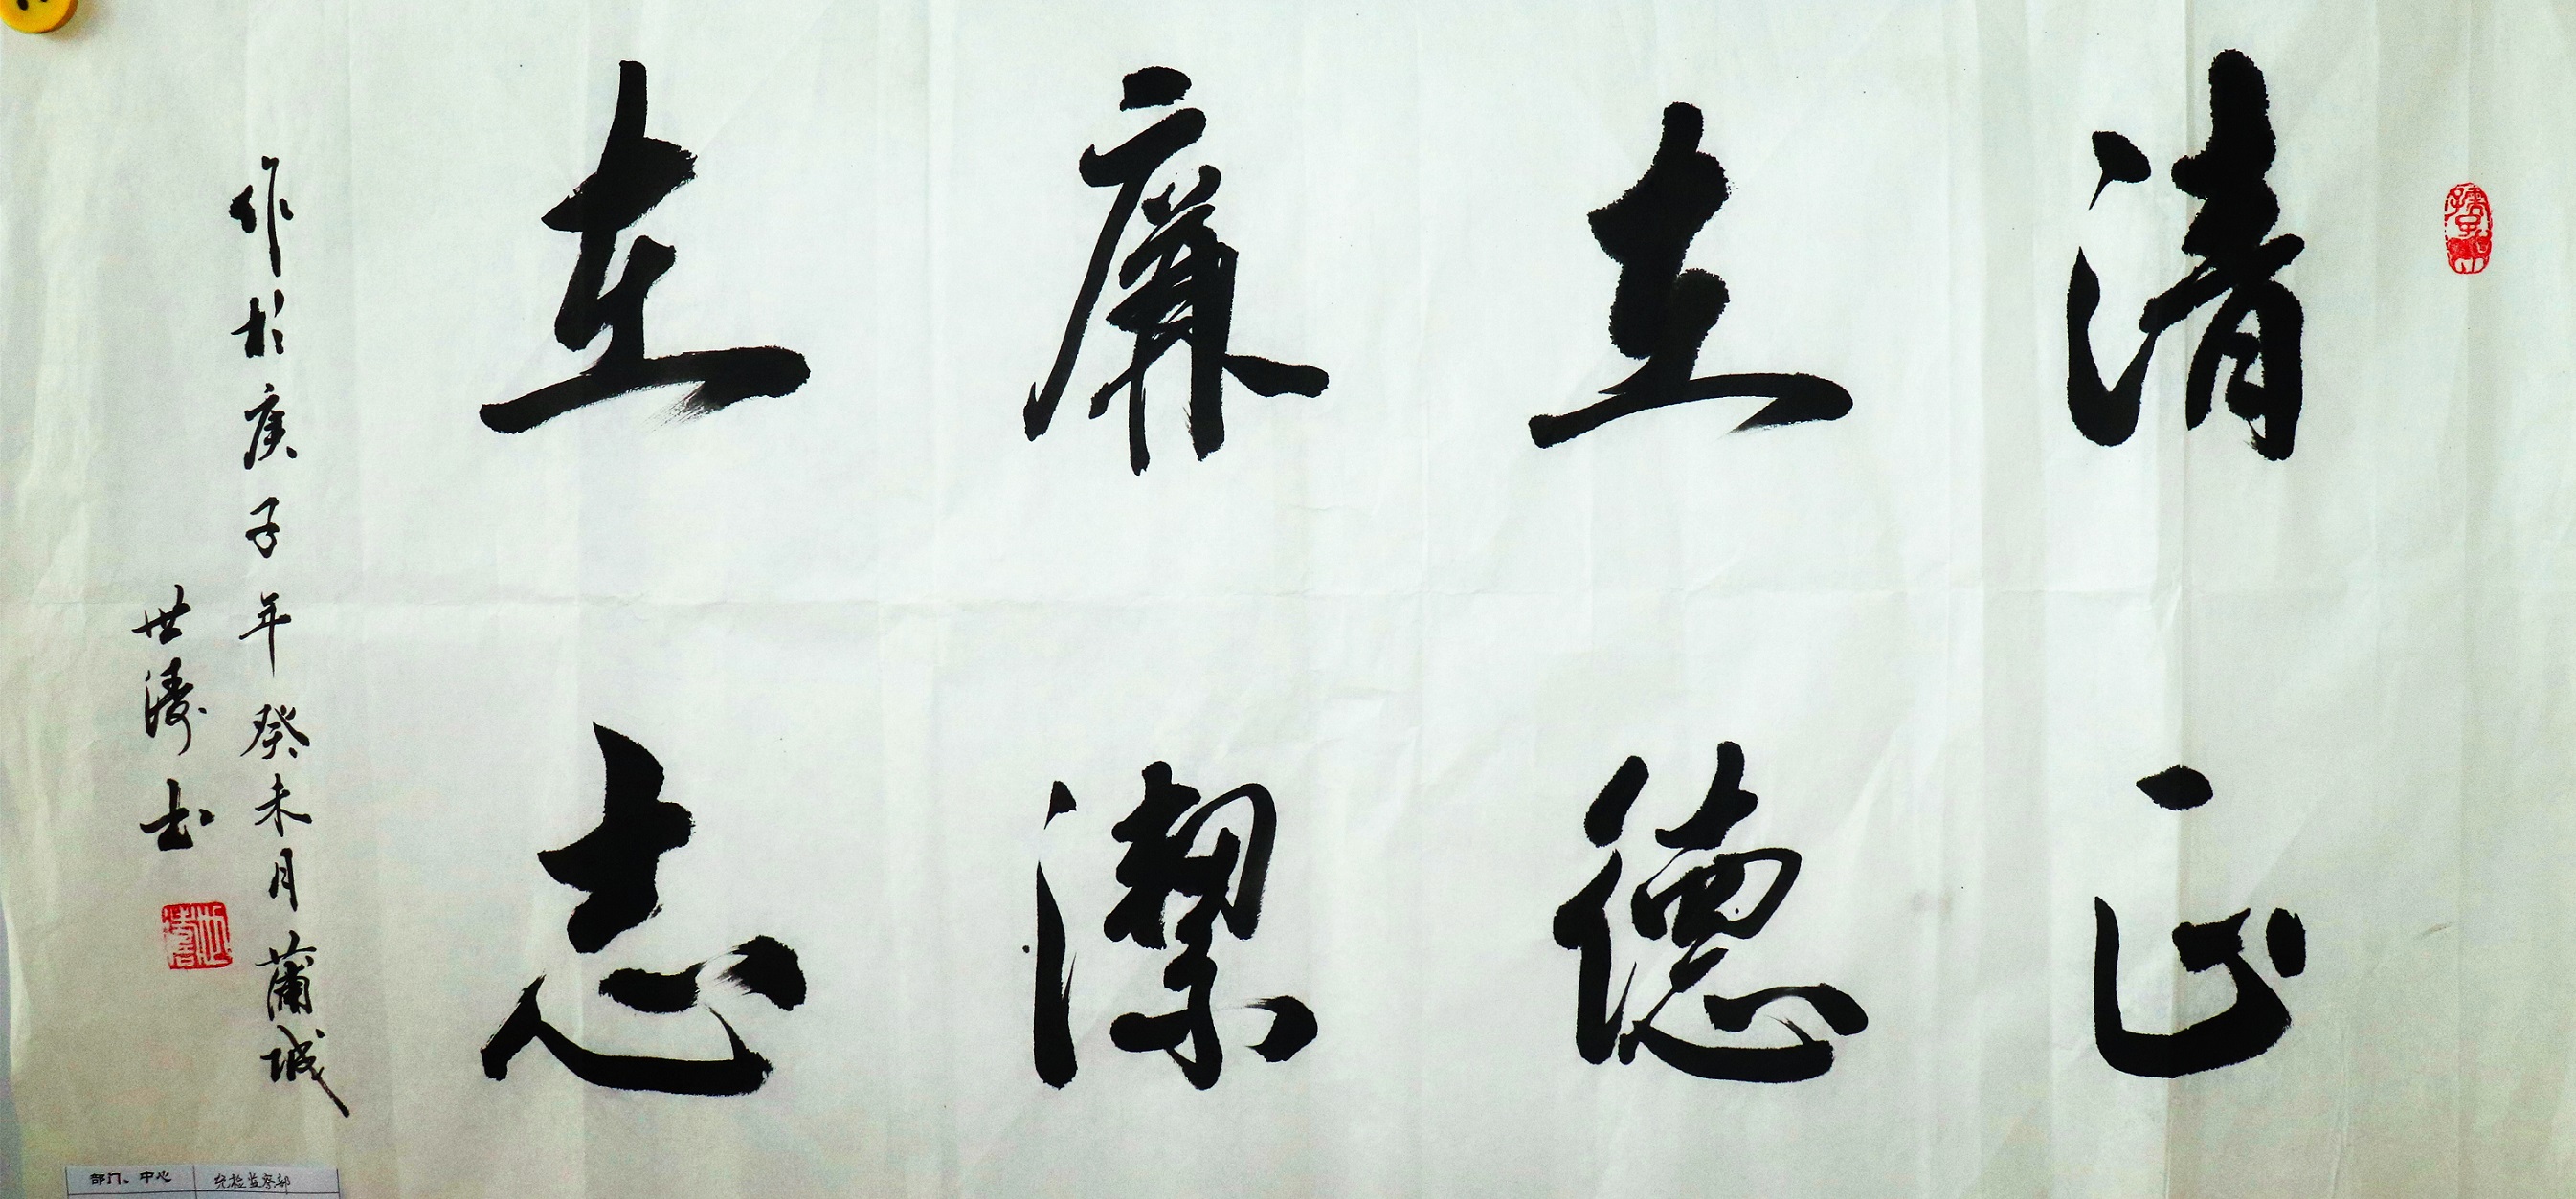 清正
在德
廉潔
在志
作於庚子年癸未月蒲城
世濤书
部门、中心 纪检监察部